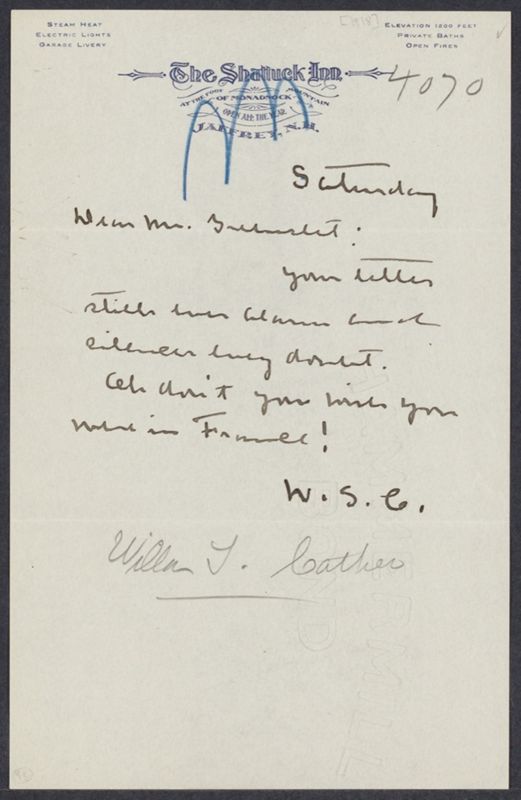 STEAM HEAT
ELECTRIC LIGHTS
GARAGE LIVERY
[1918]
ELEVATION 1200 FEET
PRIVATE BATHS
OPEN FIRES
The Shattuck Inn
4070
AT THE FOOT OF MONADNOCK MOUNTAIN
OPEN ALL THE YEAR
JAFFREY, N.H.
Saturday
Dear Mr. Greenslet:
Your letter
stills every alarm and
silences every doubt.
Oh don't you wish you
were in France!
W. S. C.
Willa S. Cather